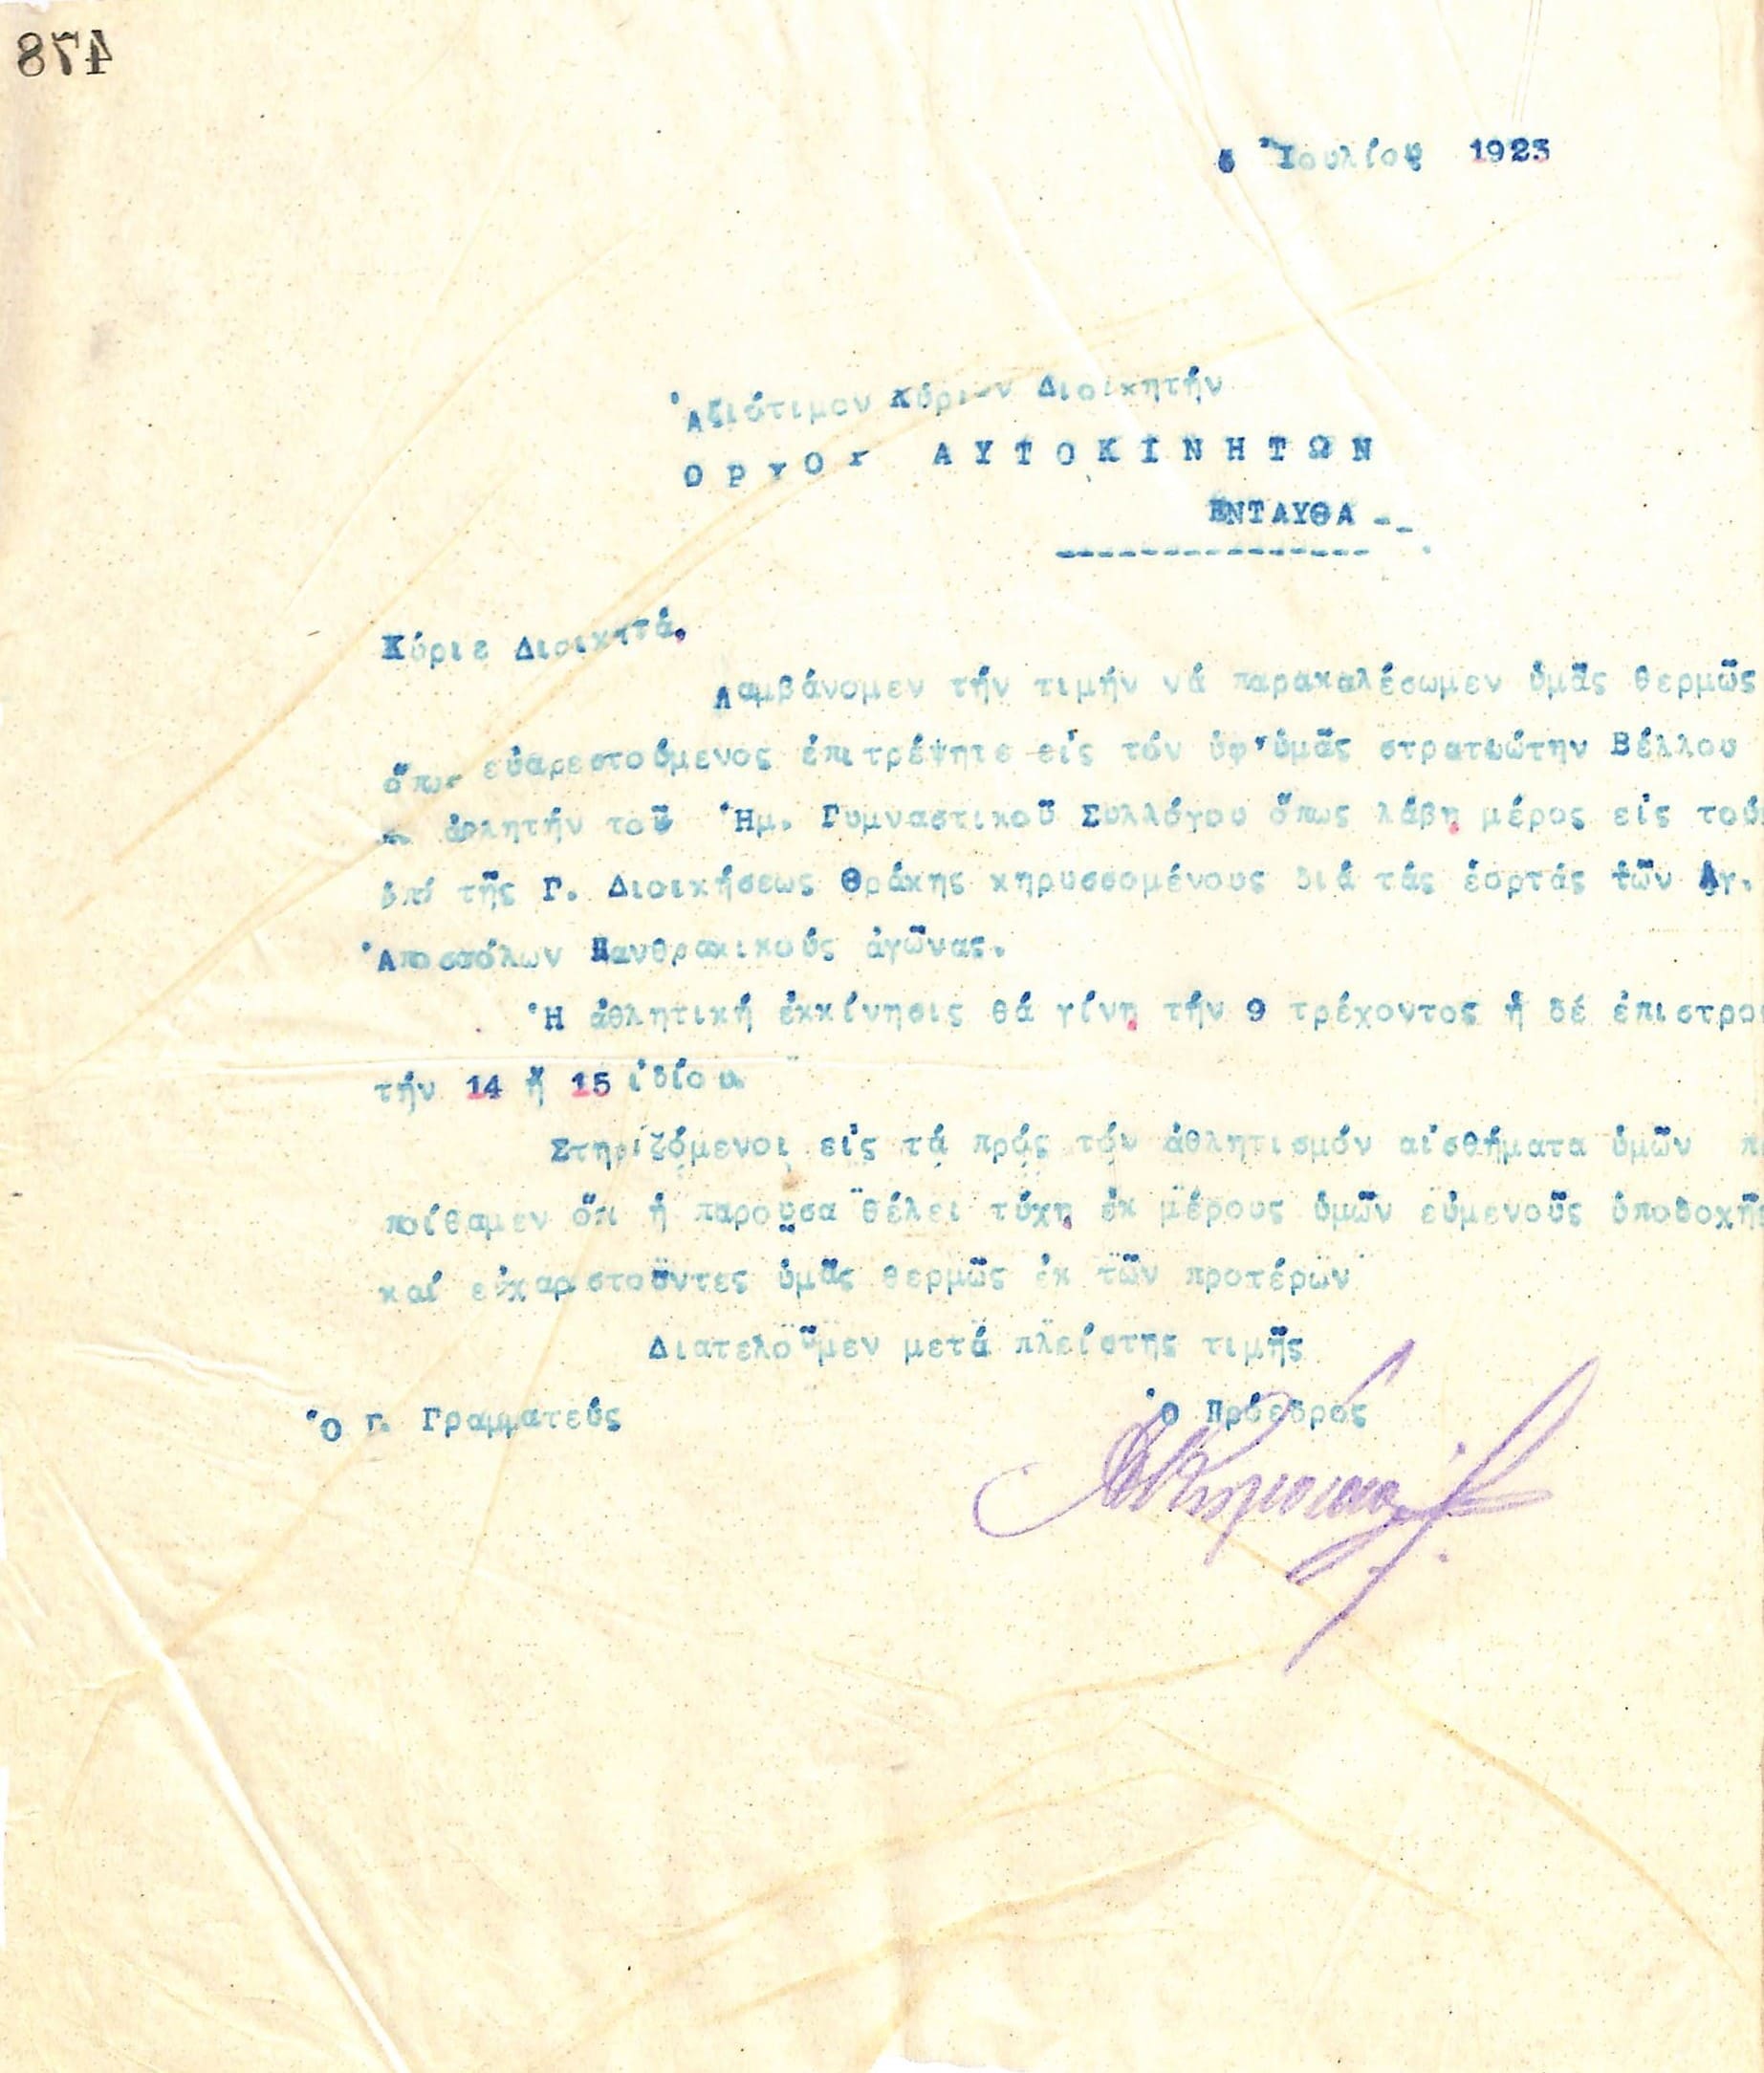 478
5 Ἰουλίου 1923
Ἀξιότιμον Κύριον Διοικητήν
ΟΡΧΟΥ ΑΥΤΟΚΙΝΗΤΩΝ
ΕΝΤΑΥΘΑ--
Κύριε Διοικητά,
Λαμβάνομεν τήν τιμήν νά παρακαλέσωμεν ὑμᾶς θερμῶς
ὅπως εὐαρεστούμενος ἐπιτρέψητε εἰς τόν ὑφ'ὑμᾶς στρατιώτην Βέλλου
ἀθλητήν τοῦ Ἡμ. Γυμναστικοῦ Συλλόγου ὅπως λάβῃ μέρος εἰς τούς
ὑπό τῆς Γ. Διοικήσεως Θράκης κηρυσσομένους διά τάς ἑορτάς τῶν Ἁγ.
Ἀποστόλων Πανθρακικούς ἀγῶνας.
Ἡ ἀθλητική ἐκκίνησις θά γίνῃ τήν 9 τρέχοντος ἡ δέ ἐπιστρο
τήν 14 ἤ 15 ἰδίου
Στηριζόμενοι εἰς τά πρός τόν ἀθλητισμόν αἰσθήματα ὑμῶν π
ποίθαμεν ὅτι ἡ παροῦσα θέλει τύχῃ ἐκ μέρους ὑμῶν εὐμενοῦς ὑποδοχῆς
καί εὐχαριστοῦντες ὑμᾶς θερμῶς ἐκ τῶν προτέρων
Διατελοῦμεν μετά πλείστης τιμῆς
Ὁ Γ. Γραμματεύς Ὁ Πρόεδρος